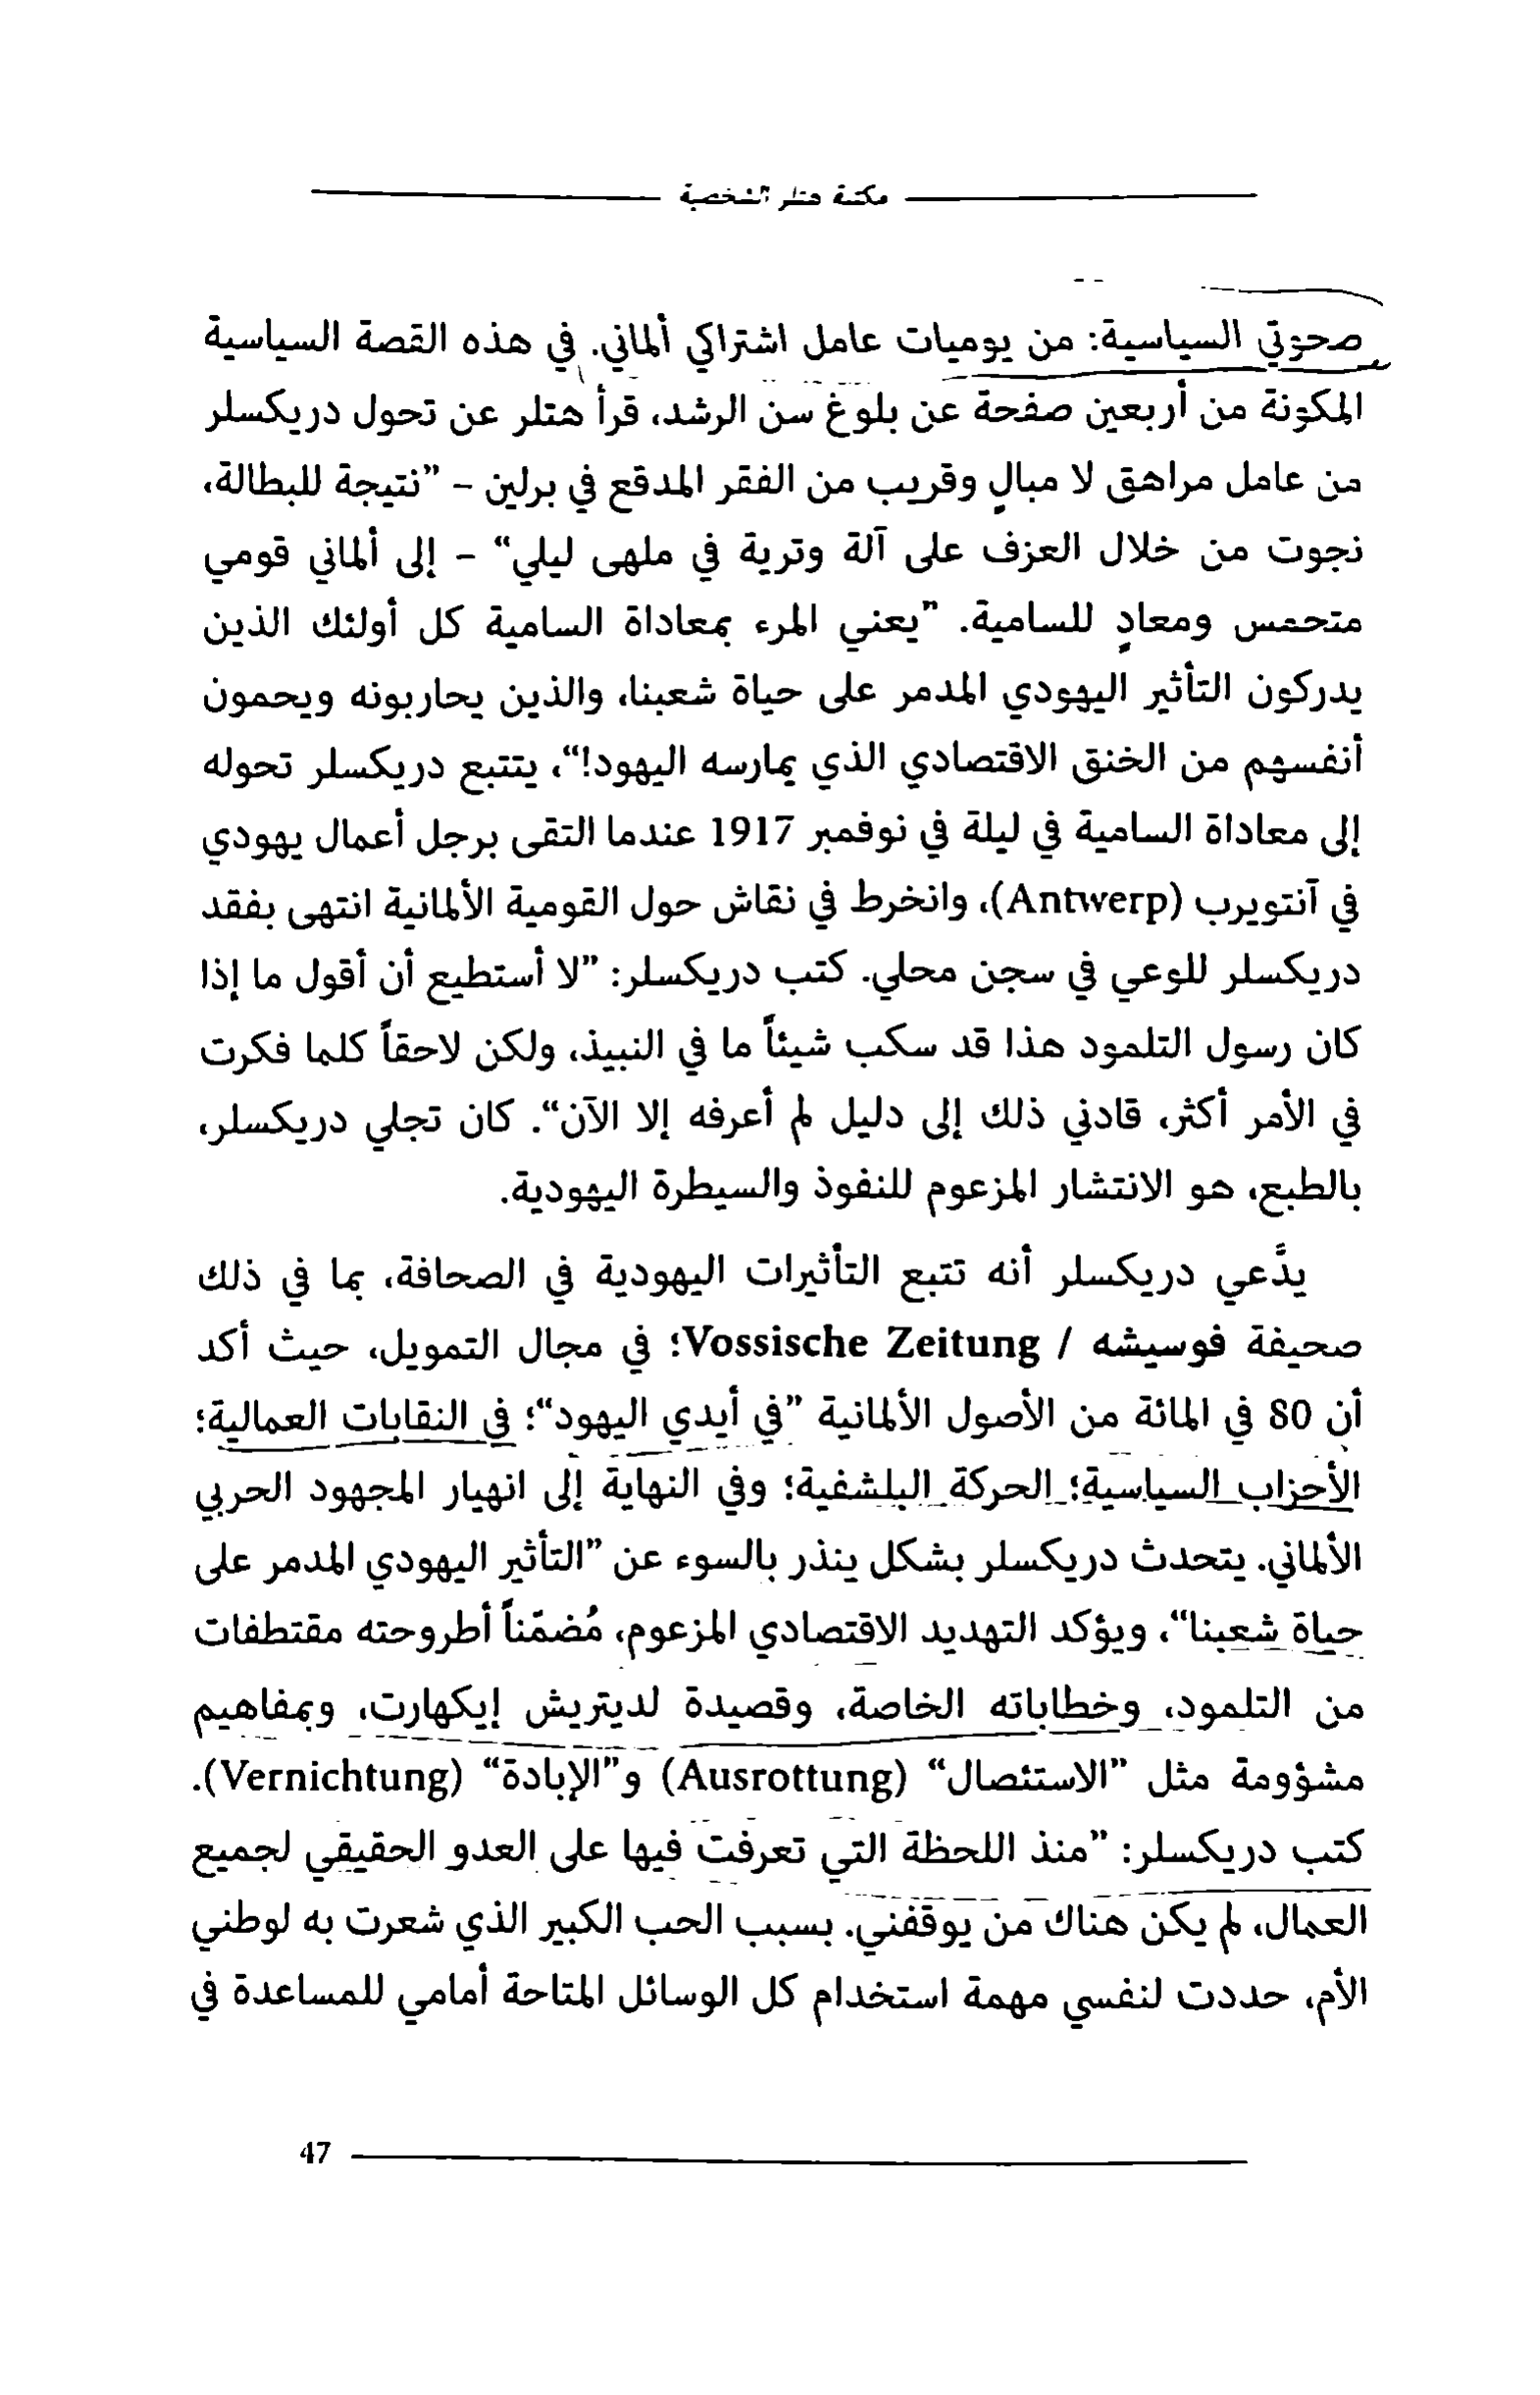 مكتبة هتلر الشخصية
صحوتي السياسية: من يوميات عامل اشتراكي ألماني. في هذه القصة السياسية
المكونة من أربعين صفحة عن بلوغ سن الرشد، قرأ هتلر عن تحول دريكسلر
من عامل مراهق لا مبالٍ وقريب من الفقر المدقع في برلين - ”نتيجة للبطالة،
نجوت من خلال العزف على آلة وترية في ملهى ليلي“ - إلى ألماني قومي
متحمس ومعادٍ للسامية. ”يعني المرء بمعاداة السامية كل أولئك الذين
يدركون التأثير اليهودي المدمر على حياة شعبنا، والذين يحاربونه ويحمون
أنفسهم من الخنق الاقتصادي الذي يمارسه اليهود!“، يتتبع دريكسلر تحوله
إلى معاداة السامية في ليلة في نوفمبر 1917 عندما التقى برجل أعمال يهودي
في آنتويرب (Antwerp)، وانخرط في نقاش حول القومية الألمانية انتهى بفقد
دريكسلر للوعي في سجن محلي. كتب دريكسلر: ”لا أستطيع أن أقول ما إذا
كان رسول التلمود هذا قد سكب شيئاً ما في النبيذ، ولكن لاحقاً كلما فكرت
في الأمر أكثر، قادني ذلك إلى دليل لم أعرفه إلا الآن“. كان تجلي دريكسلر،
بالطبع، هو الانتشار المزعوم للنفوذ والسيطرة اليهودية.
يدَّعي دريكسلر أنه تتبع التأثيرات اليهودية في الصحافة، بما في ذلك
صحيفة فوسيشه / Vossische Zeitung؛ في مجال التمويل، حيث أكد
أن 80 في المائة من الأصول الألمانية ”في أيدي اليهود“؛ في النقابات العمالية؛
الأحزاب السياسية؛ الحركة البلشفية؛ وفي النهاية إلى انهيار المجهود الحربي
الألماني. يتحدث دريكسلر بشكل ينذر بالسوء عن ”التأثير اليهودي المدمر على
حياة شعبنا“، ويؤكد التهديد الاقتصادي المزعوم، مُضمّناً أطروحته مقتطفات
من التلمود، وخطاباته الخاصة، وقصيدة لديتريش إيكهارت، وبمفاهيم
مشؤومة مثل ”الاستئصال“ (Ausrottung) و”الإبادة“ (Vernichtung).
كتب دريكسلر: ”منذ اللحظة التي تعرفت فيها على العدو الحقيقي لجميع
العمال، لم يكن هناك من يوقفني. بسبب الحب الكبير الذي شعرت به لوطني
الأم، حددت لنفسي مهمة استخدام كل الوسائل المتاحة أمامي للمساعدة في
47